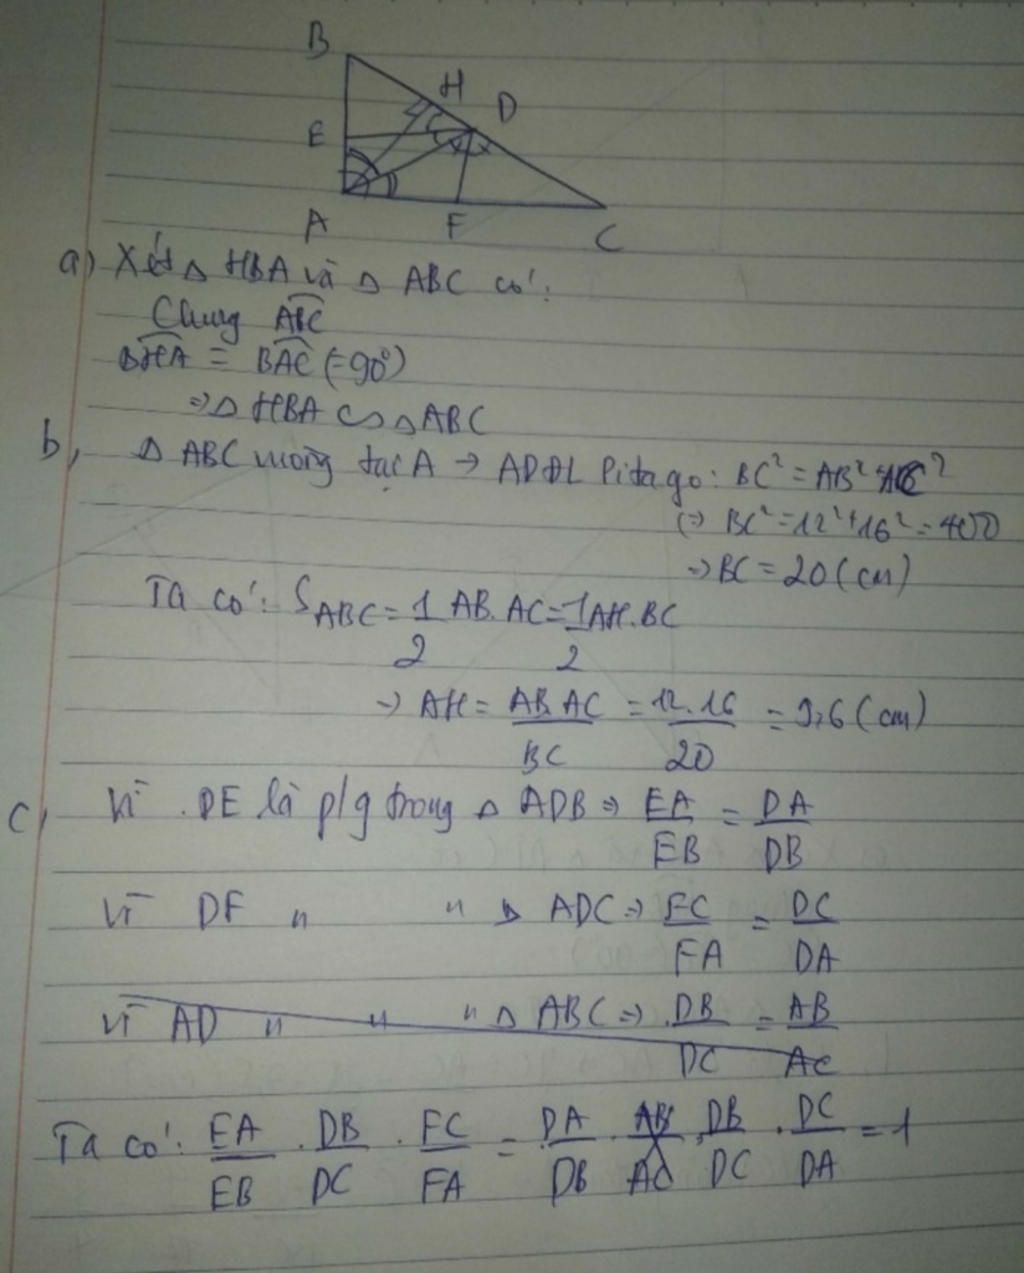 B
H
D
E
A
F
C
a) Xét Δ HBA và Δ ABC có:
Chung ABC
BHA = BAC (=90°)
=> Δ HBA ∽ Δ ABC
b, Δ ABC vuông tại A → ADĐL Pitago: BC² = AB² + AC²
(=> BC² = 12² + 16² = 400
=> BC = 20 (cm)
Ta có: S ABC = 1/2 AB. AC = 1/2 AH. BC
→ AH = AB. AC/BC = 12. 16/20 = 9,6 (cm)
c, Vì DE là p/g trong Δ ADB => EA/EB = DA/DB
Vì DF " " Δ ADC => FC/FA = DC/DA
Vì AD " " " Δ ABC => DB/DC = AB/AC
Ta có: EA/EB . DB/DC . FC/FA = DA/DB . AB/AC . DB/DC . DC/DA = 1